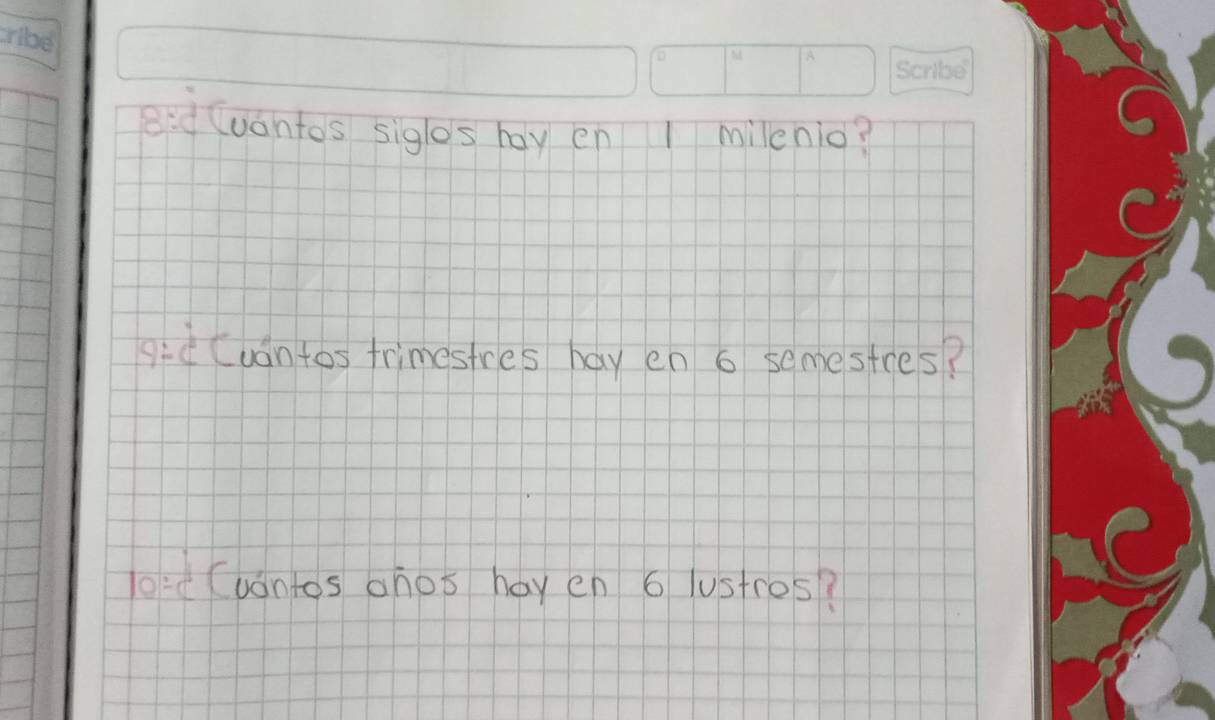 cribe
D M A
Scribe
8=¿Cuántos siglos hay en 1 milenio?
9=¿Cuántos trimestres hay en 6 semestres?
10=¿Cuántos años hay en 6 lustros?